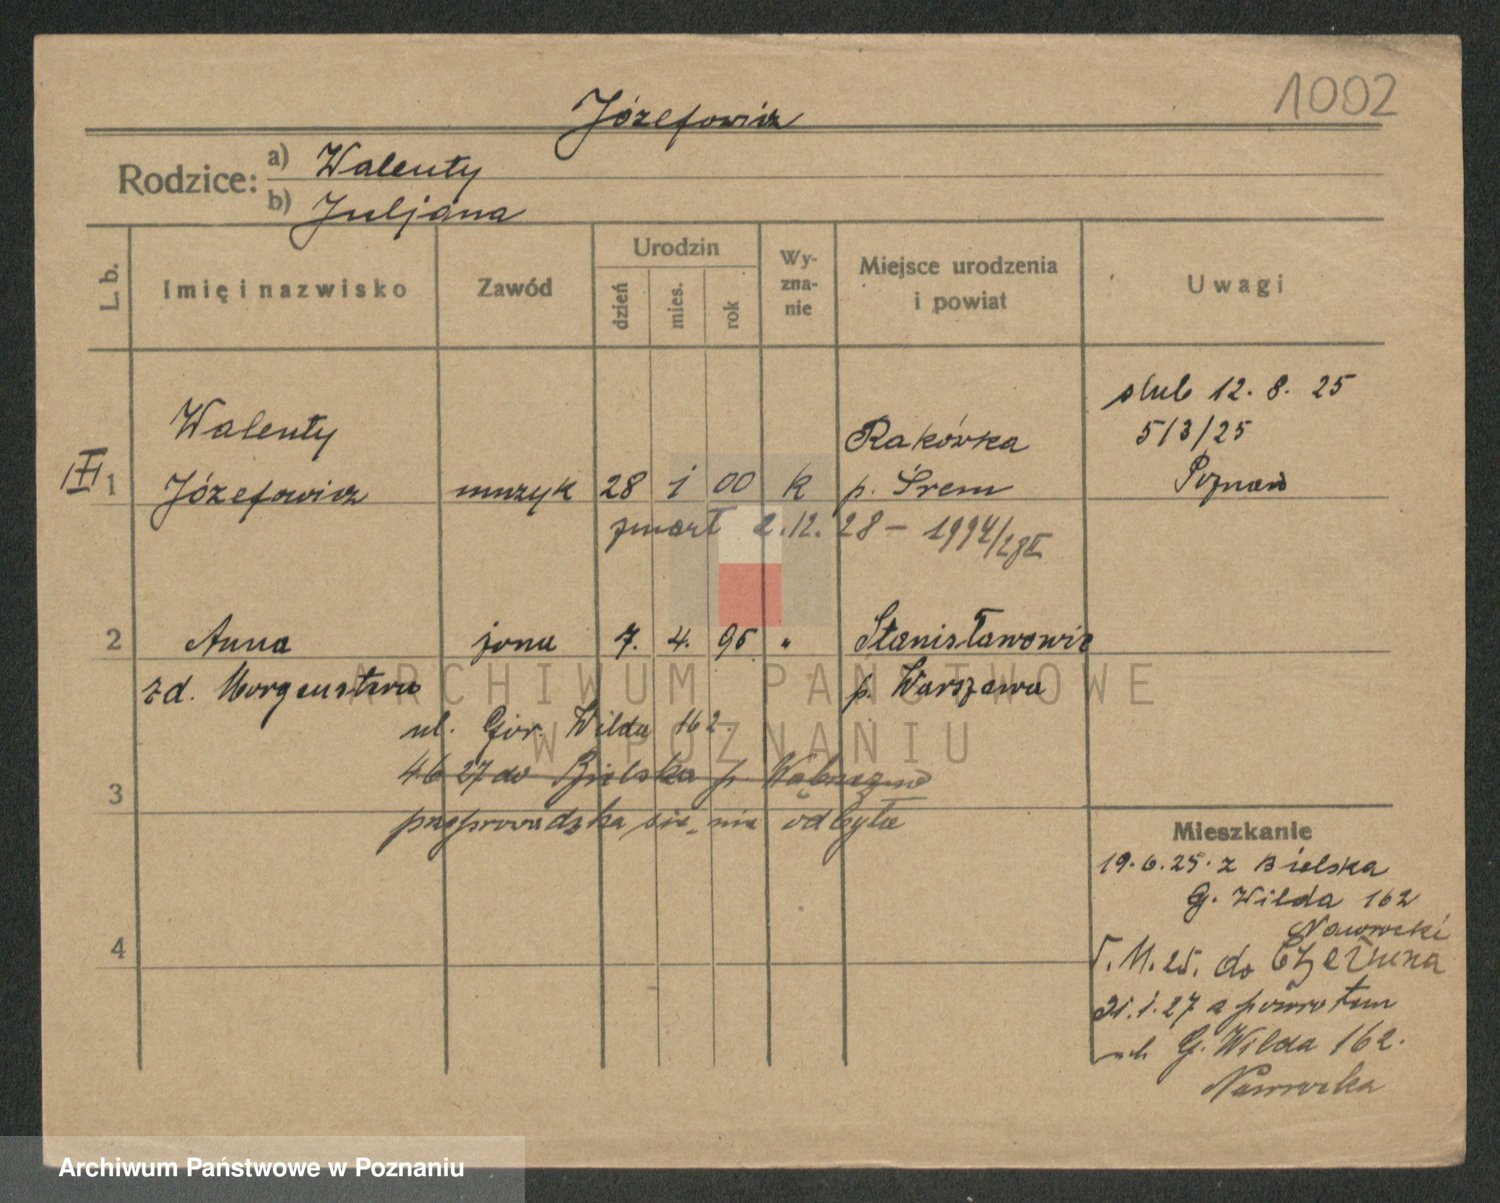 1002
Józefowicz
Rodzice: a) Walenty
b) Juljana
L. b.
Imię i nazwisko
Zawód
Urodzin
dzień
mies.
rok
Wy-
zna-
nie
Miejsce urodzenia
i powiat
Uwagi
ślub 12. 8. 25
513/25
Poznań
III 1
Walenty
Józefowicz
muzyk
28 1 00
k
Rakówka
p. Śrem
zmarł 2.12.28 – 1994/28 II
2
Anna
żona
7. 4. 95
"
Stanisławowie
zd. Morgenstern
p. Warszawa
ul. Gór. Wilda 162.
4 6 27 do Bielska p. Wąbrzeźno
3
przeprowadzka się nie odbyła
4
Mieszkanie
19.6.25. z Bielska
G. Wilda 162
Nawrocki
5.11.25. do
31.1.27 z powrotem
ul. G. Wilda 162.
Nawrocka
ARCHIWUM PAŃSTWOWE
W POZNANIU
Archiwum Państwowe w Poznaniu